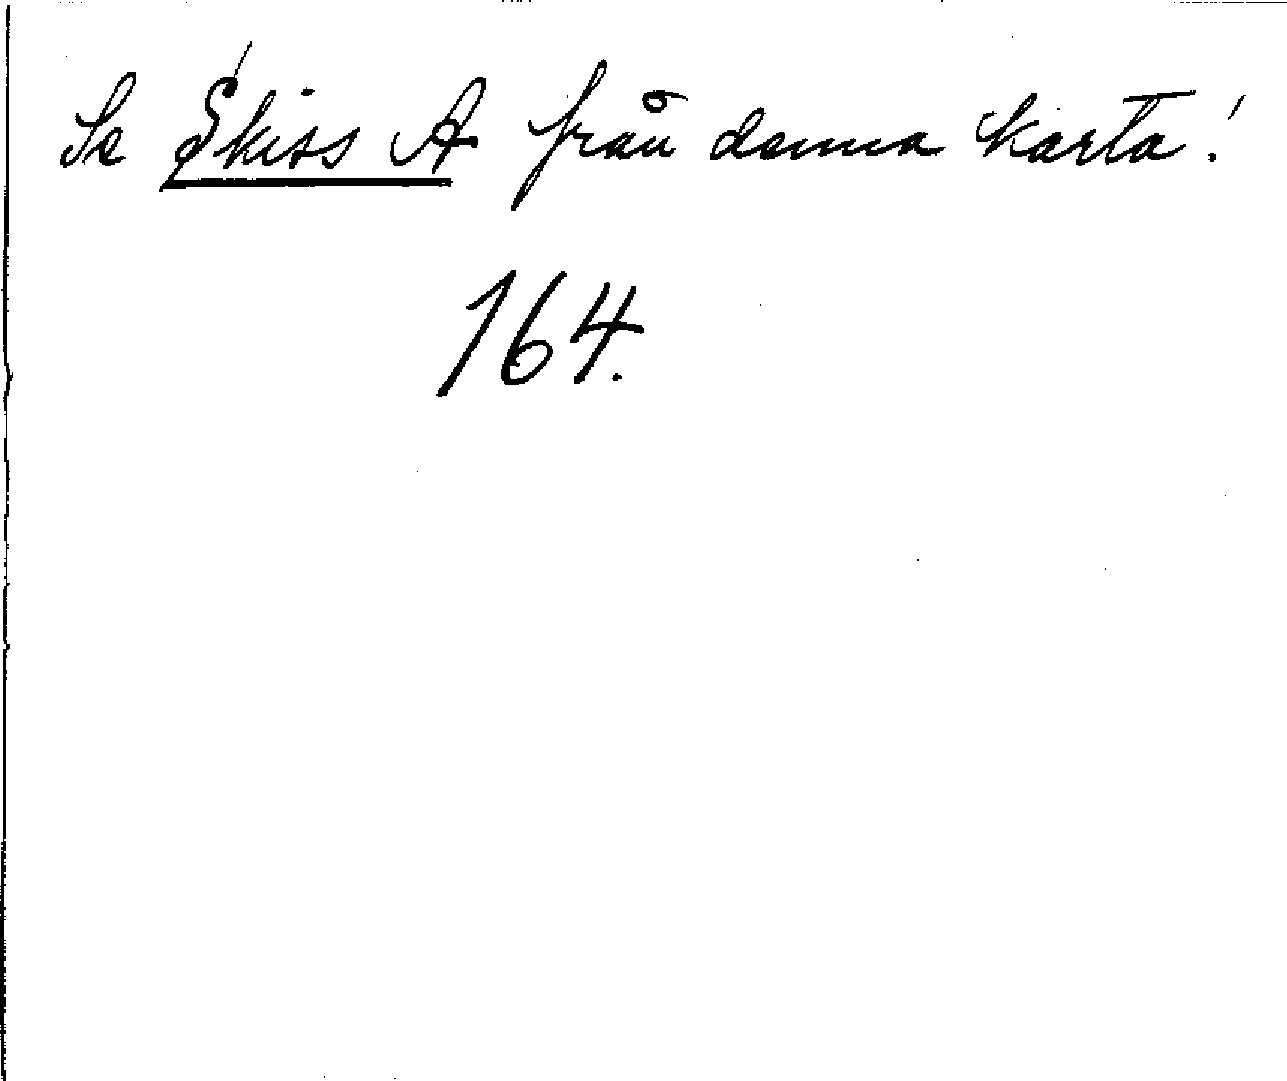 Se Skiss A från denna karta!
164.